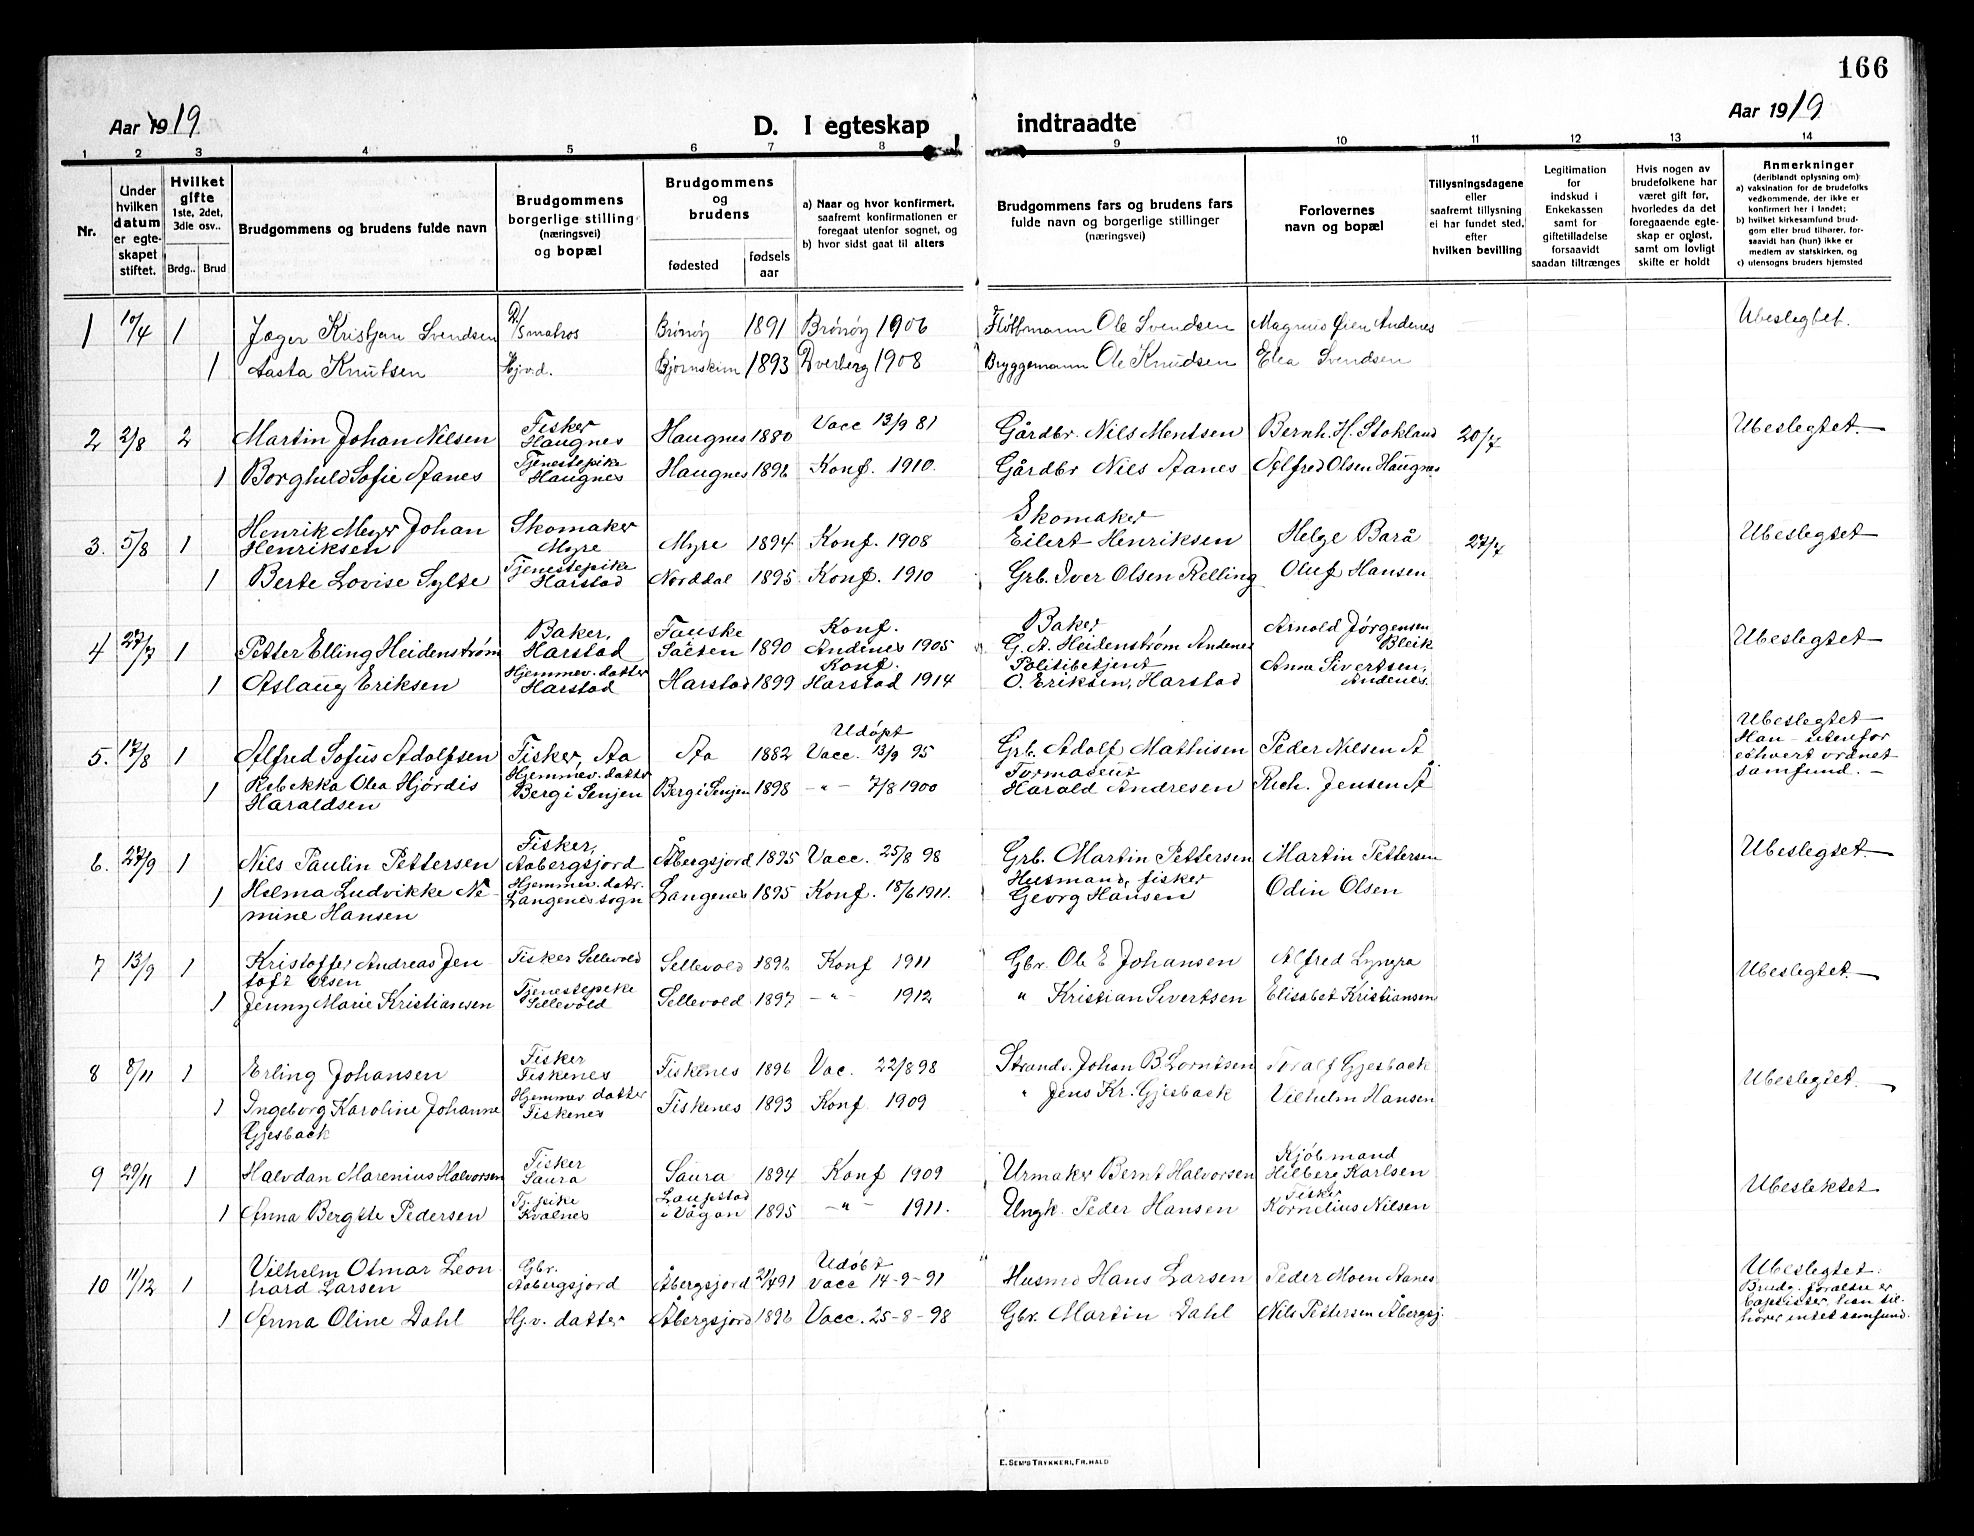 166
Aar 1919
D. I egteskap indtraadte
Aar 1919
1 2 3 4 5 6 7 8 9 10 11 12 13 14
Nr.
Under hvilken datum er egteskapet stiftet.
Hvilket gifte 1ste, 2det, 3die osv..
Brdg.. Brud
Brudgommens og brudens fulde navn
Brudgommens borgerlige stilling (næringsvei) og bopæl
Brudgommens og brudens
fødested
fødsels aar
a) Naar og hvor konfirmert, saafremt konfirmationen er foregaat utenfor sognet, og
b) hvor sidst gaat til alters
Brudgommens fars og brudens fars fulde navn og borgerlige stillinger (næringsvei)
Forlovernes navn og bopæl
Tillysningsdagene eller saafremt tillysning ei har fundet sted, efter hvilken bevilling
Legitimation for indskud i Enkekassen samt for giftetilladelse forsaavidt saadan tiltrænges
Hvis nogen av brudefolkene har været gift før, hvorledes da det foregaaende egteskap er opløst, samt om lovligt skifte er holdt
Anmerkninger (deriblandt oplysning om)
a) vaksination for de brudefolks vedkommende, der ikke er konfirmert her i landet;
b) hvilket kirkesamfund brudgom eller brud tilhører, forsaavidt han (hun) ikke er medlem av statskirken, og
c) utensogns bruders hjemsted
1 10/4 1 Jæger Kristjan Svendsen D/Smatros Brönöy 1891 Brönöy 1906 Ole Svendsen Magnus Øien Andenes Ubeslegtet.
1 Aasta Knutsen Hjv.d. Bjørnskin 1893 Dverberg 1908 Bryggemann Ole Knudsen Elea Svendsen
2 2/8 2 Martin Johan Nilsen Fisker Haugnes Haugnes 1880 Vacc 13/9 81 Gårdbr. Nils Mentsen Bernh. H. Stokland 20/7 Ubeslegtet.
1 Borghild Sofie Aanes Tjenestepike Haugnes Haugnes 1896 Konf. 1910. Gårdbr Nils Aanes Alfred Olsen Haugnes
3. 5/8 1 Henrik Meyer Johan Henriksen Skomaker Myre Myre 1894 Konf. 1908 Skomaker Eilert Henriksen Helge Barå 27/7 Ubeslegtet
1 Berte Lovise Sylte Tjenestepike Harstad Norddal 1895 Konf. 1910 Grb. Iver Olsen Relling Oluf Hansen
4 27/7 1 Petter Elling Heidenstrøm Baker, Harstad Fauske Salten 1890 Konf. Andenes 1905 Baker G. A. Heidenstrøm Andenes Arnold Jørgensen Bleik Ubeslegtet
1 Aslaug Eriksen Hjemmev. datter Harstad Harstad 1899 Konf. Harstad 1914 Politibetjent O. Eriksen, Harstad Anna Sivertsen, Andenes.
5. 17/8 1 Alfred Sofus Adolfsen Fisker, Aa Aa 1882 Udøpt Vacc. 13/9 95 Grb. Adolf Mathisen Peder Nilsen Å Ubeslegtet Han utenfor ethvert ordnet samfund. —
1 Rebekka Olea Hjørdis Haraldsen Hjemmev. datter Berg i Senjen Berg i Senjen 1898 -"- 7/8 1900 Harald Andresen Rich. Jensen Å
6. 27/9 1 Nils Paulin Pettersen Fisker, Aabergsjord Åbergsjord 1895 Vacc. 25/8 98 Grb. Martin Pettersen Martin Pettersen Ubeslegtet.
1 Helma Ludvikke Nemine Hansen Hjemmev. datr. Langenes sogn Langenes 1895 Konf. 18/6 1911. Husmand, fisker Georg Hansen Odin Olsen
7 13/9 1 Kristoffer Andreas Jentoft Olsen Fisker Sellevold Sellevold 1896 Konf 1911 Gbr. Ole E Johansen Alfred Lyngra Ubeslegtet.
1 Jenny Marie Kristiansen Tjenestepike Sellevold Sellevold 1897 -"- 1912 " Kristian Sivertsen Elisabet Kristiansen
8 8/11 1 Erling Johansen Fisker Fiskenes Fiskenes 1896 Vac. 22/8 98 Strands. Johan B. Lorntsen Toralf Gjesback Ubeslegtet.
1 Ingeborg Karoline Johanne Gjesback Hjemmev datter Fiskenes Fiskenes 1893 Konf 1909 " Jens Kr. Gjesback Vilhelm Hansen
9 29/11 1 Halvdan Marenius Halvorsen Fisker Saura Saura 1894 Konf 1909 Urmaker Bernt Halvorsen Kjøbmand Hilberg Karlsen Ubeslektet
1 Anna Bergitte Pedersen Tj. pike Kvalnes Laupstad i Vågan 1895 -"- 1911. Ungk. Peder Hansen Fisker Kornelius Nilsen
10 11/12 1 Vilhelm Otmar Leonhard Larsen Gbr. Aabergsjord Åbergsjord 21/4 91 Udøbt vacc 14-9-91 Husmd Hans Larsen Peder Moen Aanes Ubeslegtet. Brudg. foraldre er baptister, han tilhører intet samfund.
1 Anna Oline Dahl Hj.v. datter Åbergsjord 1896 Vacc. 25-8-98 Gbr. Martin Dahl Nils Pettersen Åbergsj.
E. SEM'S TRYKKERI, FR. HALD